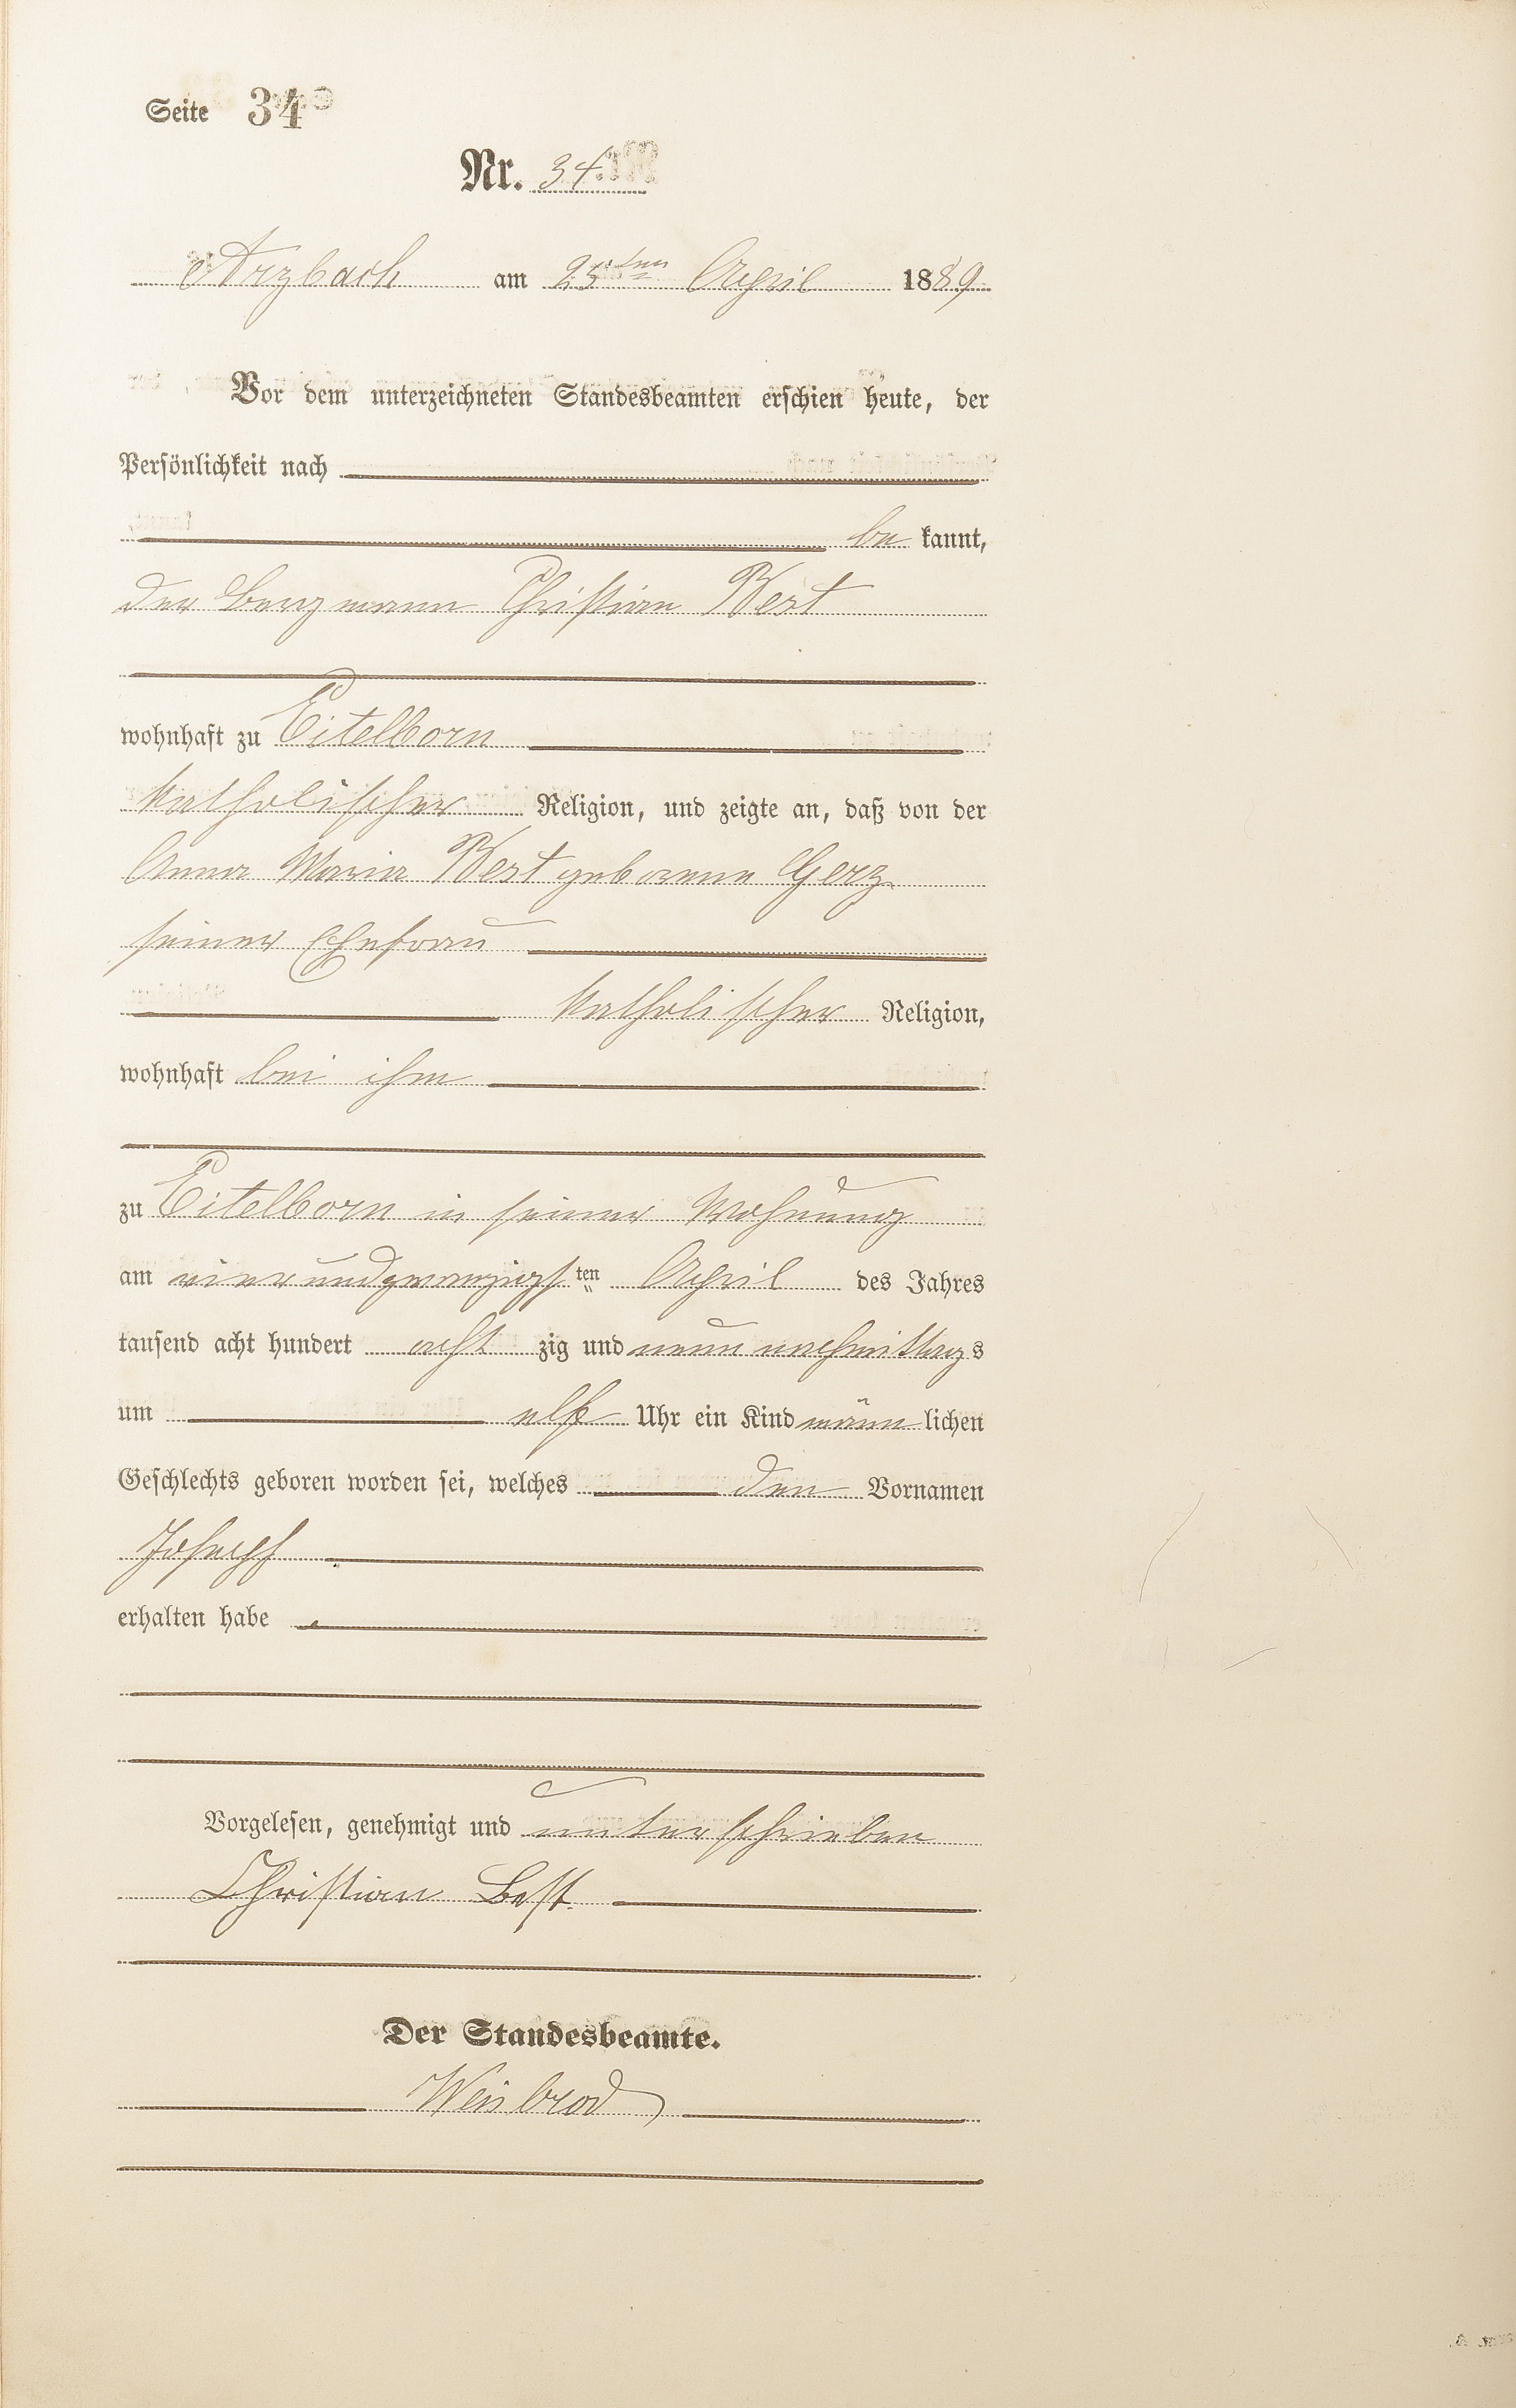 Seite 34
Nr. 34.
Arzbach am 25ten April 1889.
Vor dem unterzeichneten Standesbeamten erschien heute, der
Persönlichkeit nach
be kannt,
der Bergmann Christian Best
wohnhaft zu Eitelborn
katholischer Religion, und zeigte an, daß von der
Anna Maria Best geborene Gerz
seiner Ehefrau
katholischer Religion,
wohnhaft bei ihm
zu Eitelborn in seiner Wohnung
am vierundzwanzigsten April des Jahres
tausend acht hundert acht zig und neun nachmittags
um elf Uhr ein Kind männ lichen
Geschlechts geboren worden sei, welches den Vornamen
Joseph
erhalten habe
Vorgelesen, genehmigt und unterschrieben
Christian Best.
Der Standesbeamte.
Weisbrod